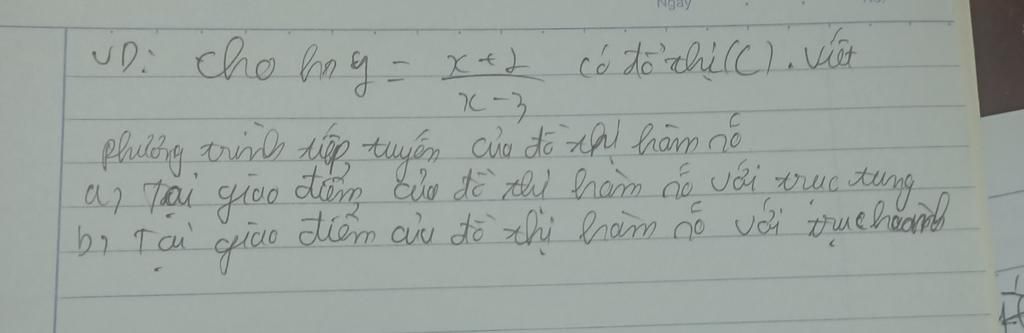 Ngày
VD: Cho hs y = \frac{x+2}{x-3} có đồ thị (C). Viết
phương trình tiếp tuyến của đồ thị hàm số
a) Tại giao điểm của đồ thị hàm số với trục tung
b) Tại giao điểm của đồ thị hàm số với trục hoành